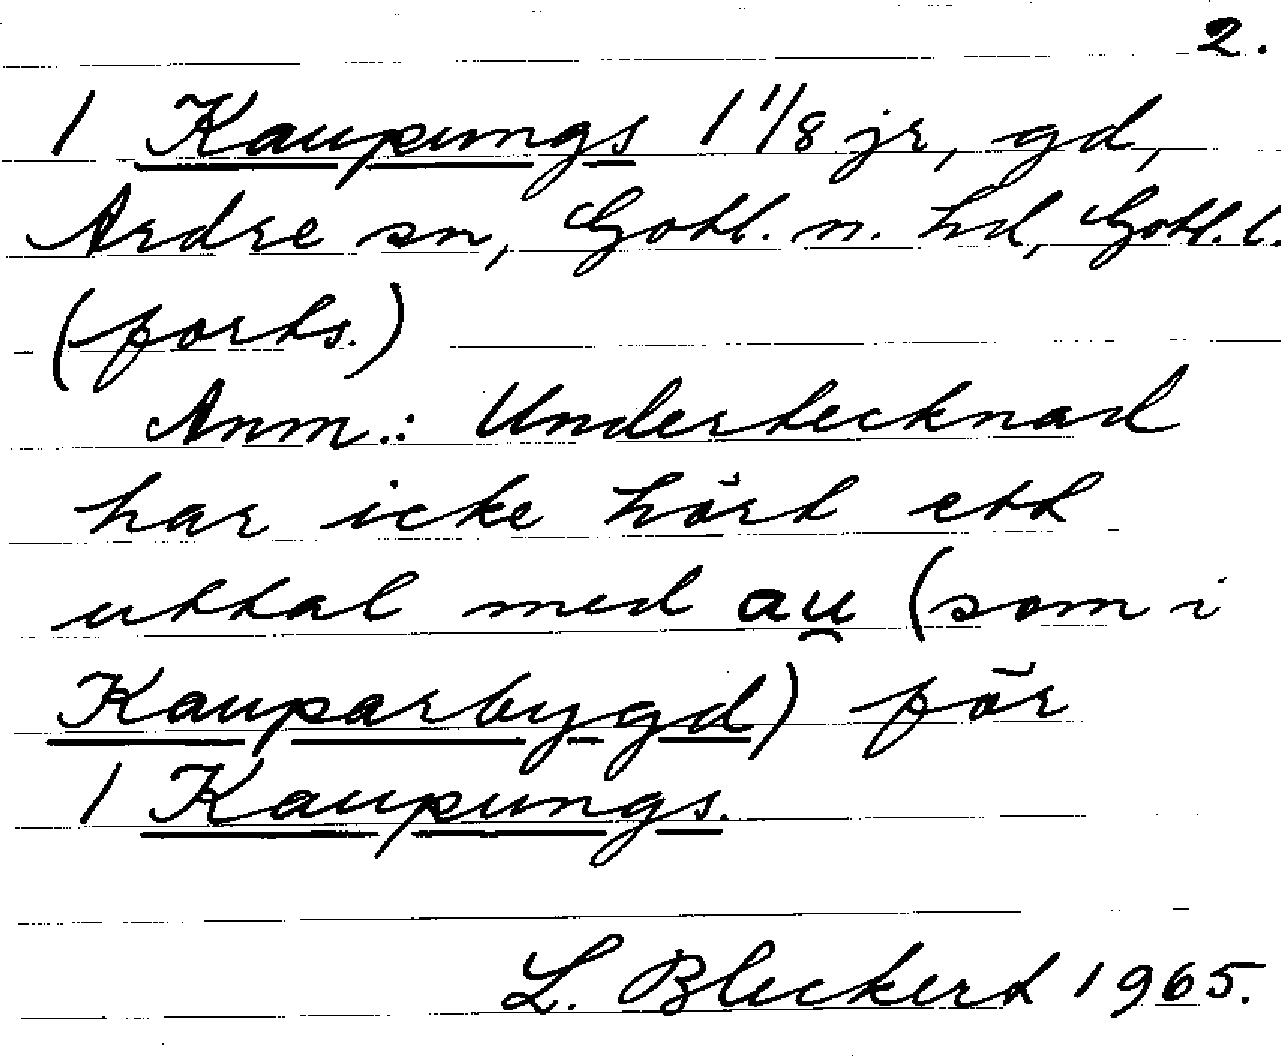 2.
1 Kaupungs 1 1/8 jr, gd,
Ardre sn, Gotl. n. hd, Gotl. l.
(forts.)
Anm.: Undertecknad
har icke hört ett
uttal med au̯ (som i
Kauparbygd) för
1 Kaupungs.
L. Bleckert 1965.